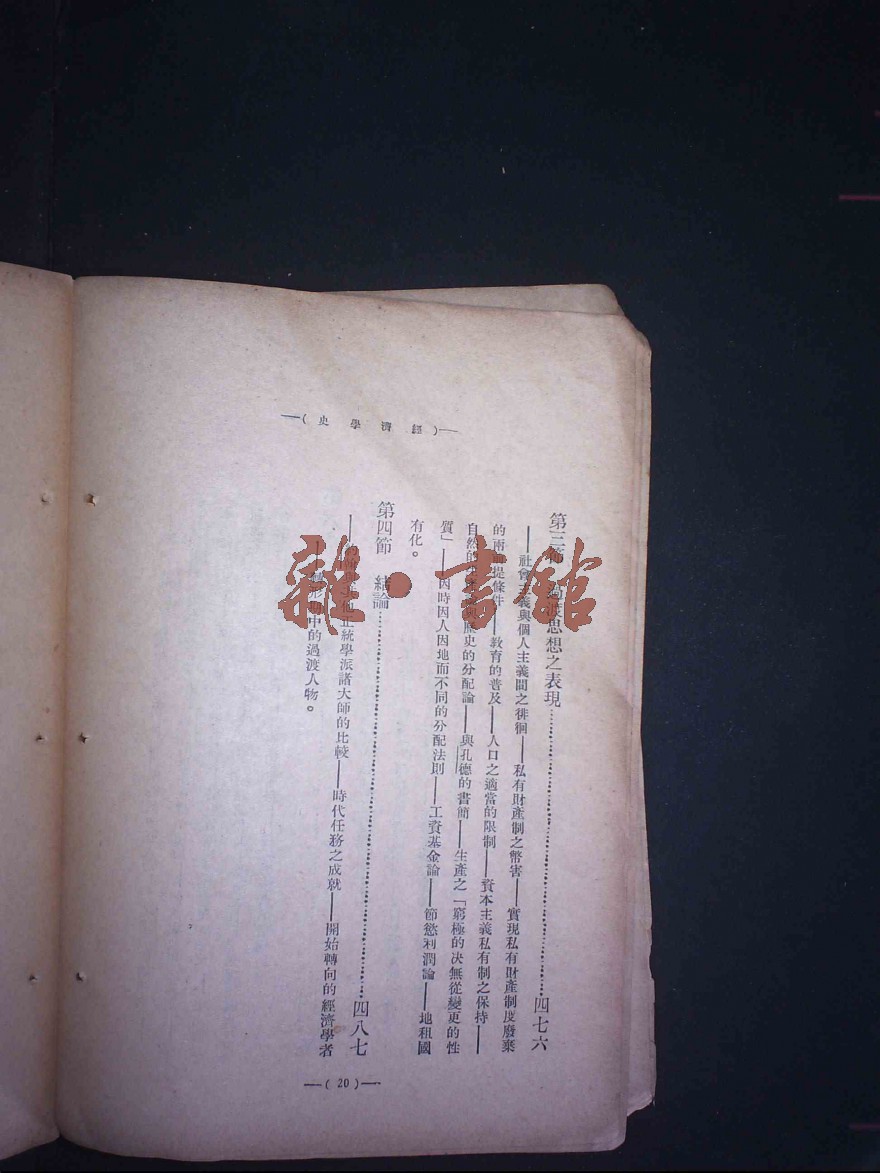 —（史學濟經）—
第三節　過渡思想之表現……四七六
——社會主義與個人主義間之徘徊——私有財產制之幣害——實現私有財產制度廢棄
的兩前提條件——教育的普及——人口之適當的限制——資本主義私有制之保持——
自然的 歷史的分配論——與孔德的書簡——生產之「窮極的決無從變更的性
質」——因時因人因地而不同的分配法則——工資基金論——節慾利潤論——地租國
有化。
第四節　結論……四八七
—— 正統學派諸大師的比較——時代任務之成就——開始轉向的經濟學者
—— 形 中的過渡人物。
—（20）—
雜·書館